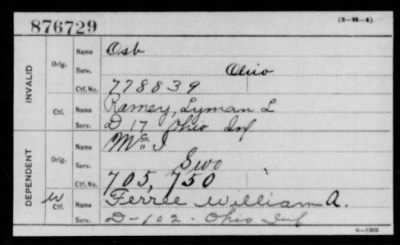 876729
(3—98—4)
INVALID
Orig.
Name Osb
Serv. Ohio
Ctf. No. 778839
Ctf.
Name Ramey, Lyman L
Serv. D 17 Ohio Inf
DEPENDENT
Orig.
Name Mc I
Serv. Swo
Ctf. No. 705,750
W Ctf.
Name Ferree William A.
Serv. D-102- Ohio Inf